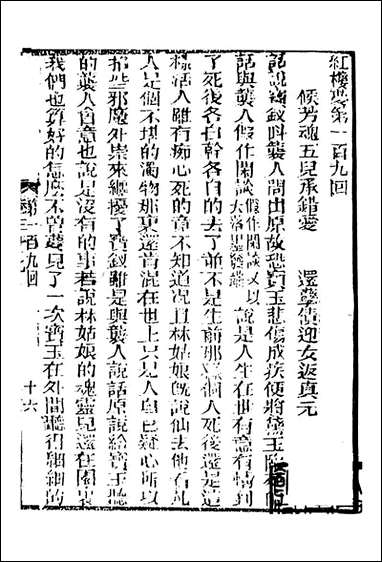 紅樓夢第一百九回
候芳魂五兒承錯愛 還孽債迎女返真元
話說寶釵叫襲人問出原故恐寶玉悲傷成疾便將黛玉臨
話與襲人假作閒談 又以說是人生在世有意有情到
了死後各自幹各自的去了並不是生前那樣個人死後還是這
樣活人雖有痴心死的竟不知道况且林姑娘旣說仙去他看凡
人是個不堪的濁物那裏還肯混在世上只是人自己疑心所以
招些邪魔外祟來纏擾了寶釵雖是與襲人說話原說給寶玉聽
的襲人會意也說是沒有的事若說林姑娘的魂靈兒還在園裏
我們也算好的怎麼不曾夢見了一次寶玉在外間聽得細細的
第一百九回
十六